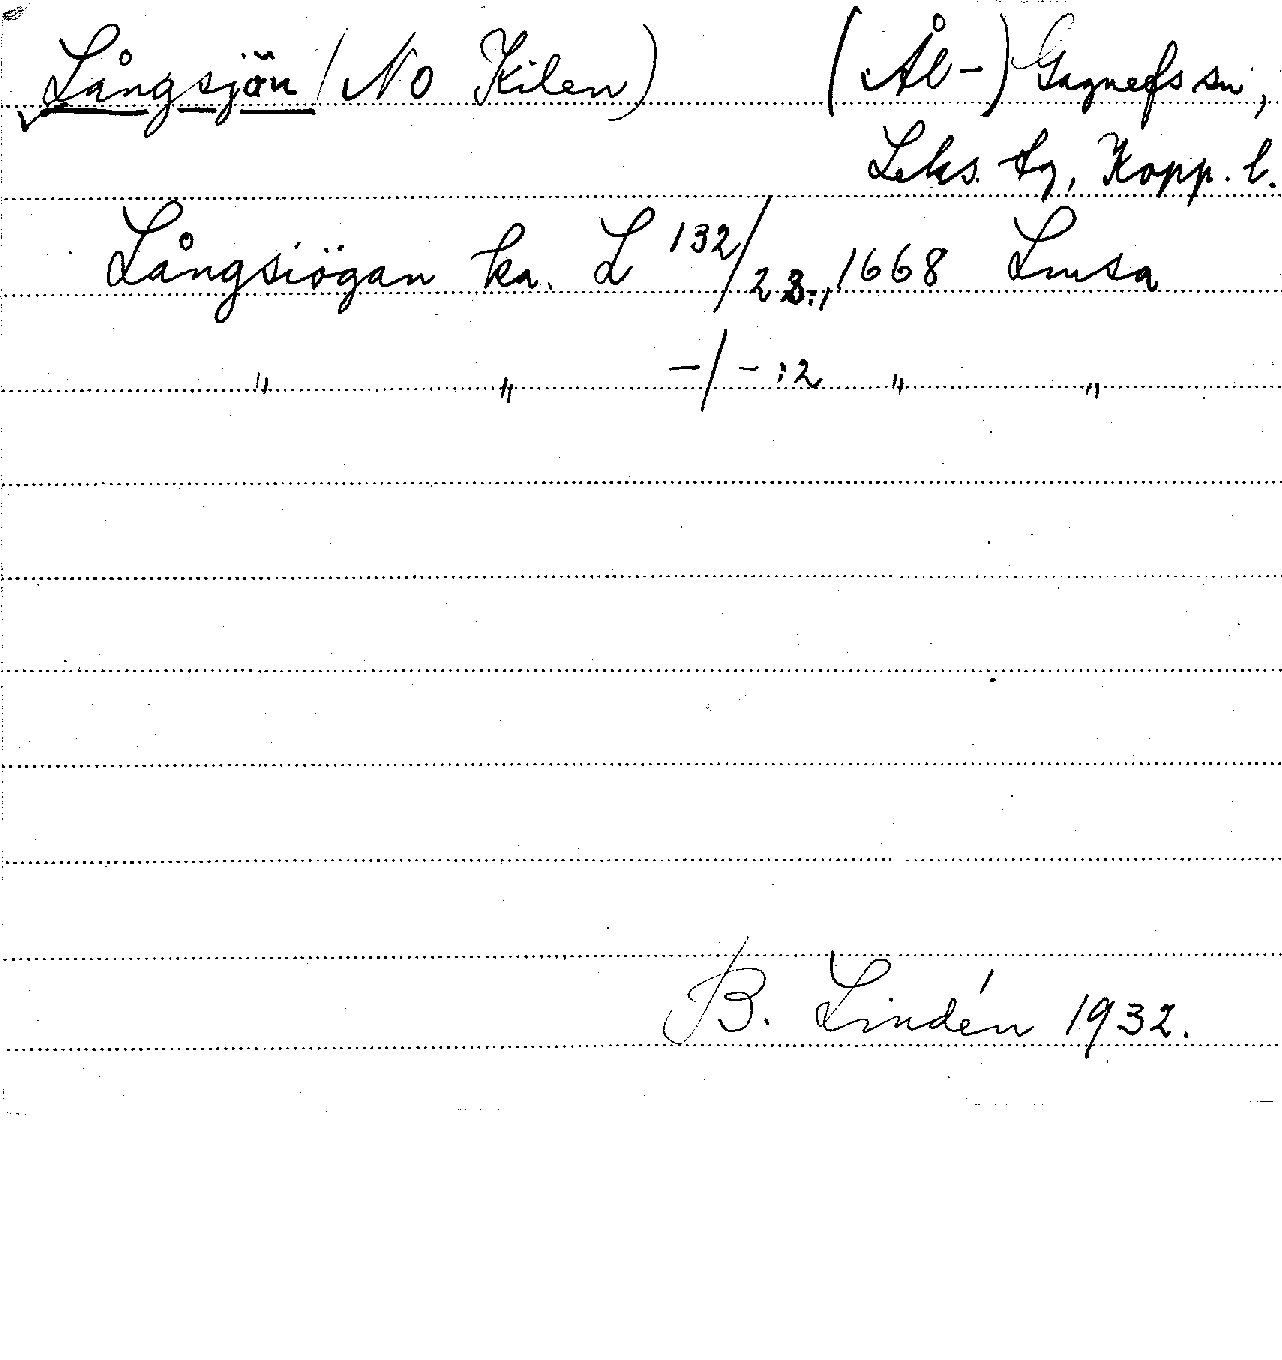 Långsjön (No Kilen) (Ål-) Gagnefs sn,
Leks. tg, Kopp. l.
Långsiögan ka. L 132/23:, 1668 Lmsa
" " -/-:2 " "
B. Lindén 1932.